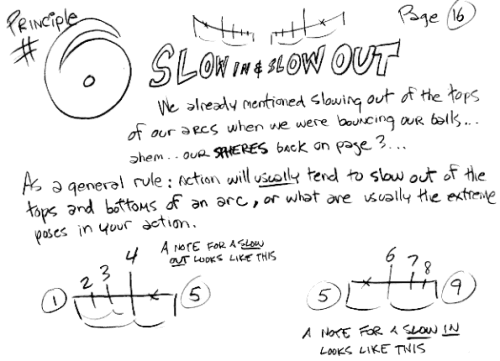 PRINCIPLE
Page 16
# 6
SLOW IN & SLOW OUT
We already mentioned slowing out of the tops
of our arcs when we were bouncing our balls...
ahem.. our SPHERES back on page 3...
As a general rule: Action will usually tend to slow out of the
tops and bottoms of an arc, or what are usually the extreme
poses in your action.
A NOTE FOR A SLOW
OUT LOOKS LIKE THIS
1 2 3 4 5
5 6 7 8 9
A NOTE FOR A SLOW IN
LOOKS LIKE THIS